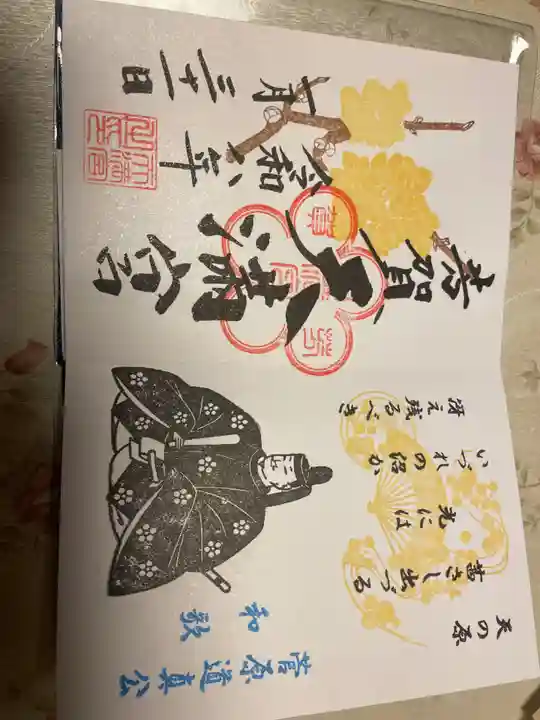 賀
天満宮
令和
七月三十一日
天の原
茜さし出づる
光には
いづれの沼か
冴え残るべき
和敬
菅原道真公